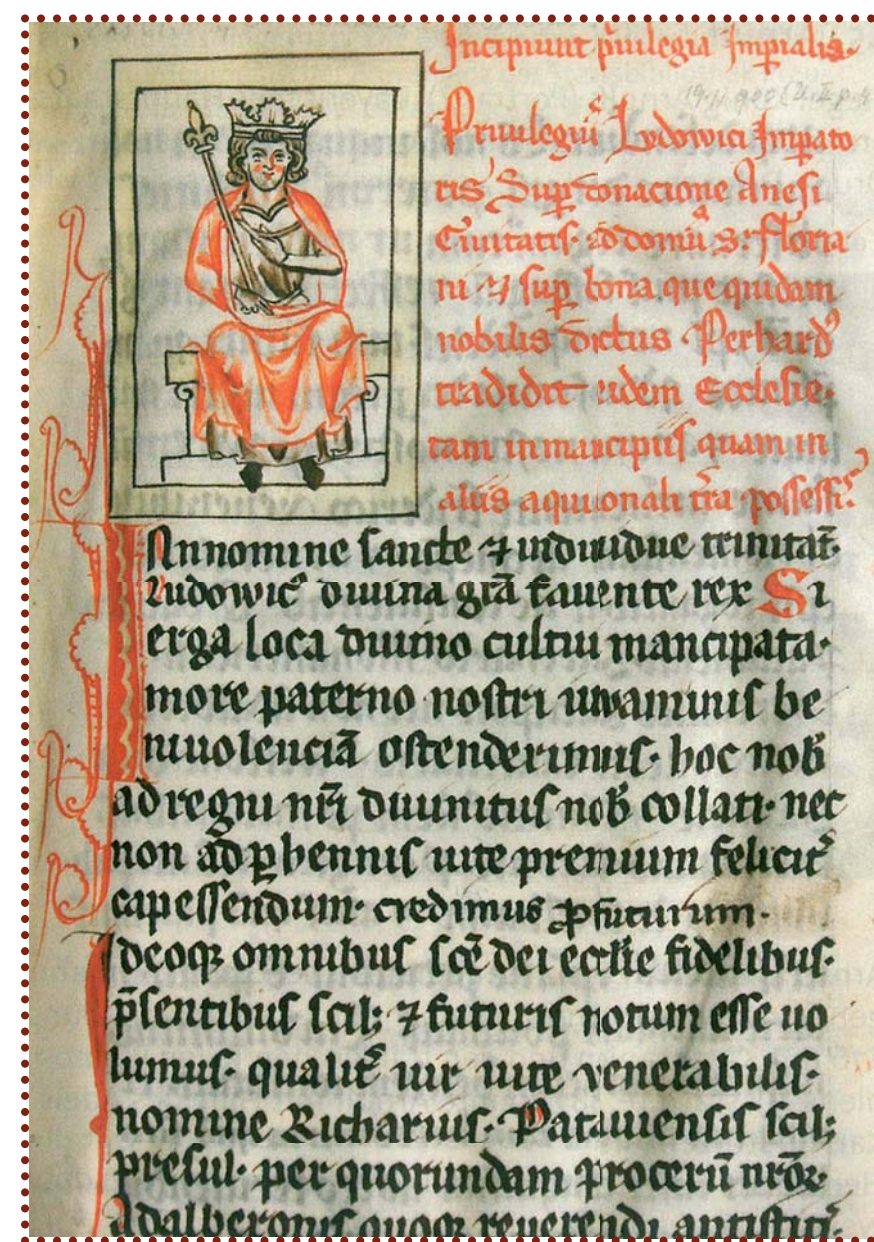 Incipiunt p̄uilegia Imp̱ialia·
Priuilegiū Lvdowici Imp̱ato
ris Sup̱ donacione Anesi
Ciuitatis· ad domū s· floria
ni ⁊ sup̱ bona que quidam
nobilis dictus Perhardꝰ
tradidit eidem Ecclesie·
tam in mancipiis quam in
aliis aquilonali
Innomine sancte ⁊ indiuidue trinitat̄·
Ludowicꝰ diuina grā fauente rex Si
erga loca diuino cultui mancipata·
more paterno nostri iuuaminis be
niuolenciā ostenderimus· hoc nob̄
ad regni nr̄i diuinitus nob̄ collati· nec
non ad ꝑhennis uite premium felicit̾
capessendum· credimus ꝓfuturum·
Ideoqꝫ omnibus scē dei eccl̄ie fidelibus·
p̄sentibus scilꝫ ⁊ futuris notum esse uo
lumus· qualit̾ uir uite venerabilis·
nomine Richarius· Patauiensis scilꝫ
presul· per quorundam procerū nr̄oꝝ
Adalberonis quoqꝫ reuerendi antistitis·